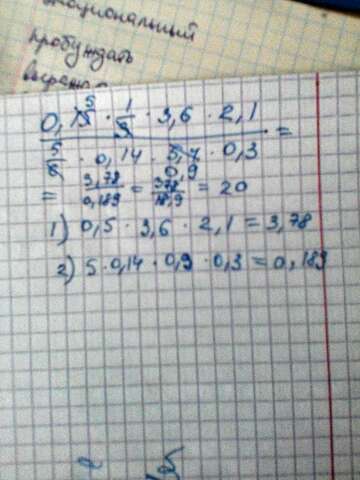 пробуждать
0,15 5 · 1/3 · 3,6 · 2,1 =
5/6 · 0,14 · 5,7 0,9 · 0,3
= 3,78/0,189 = 378/18,9 = 20
1) 0,5 · 3,6 · 2,1 = 3,78
2) 5 · 0,14 · 0,9 · 0,3 = 0,189